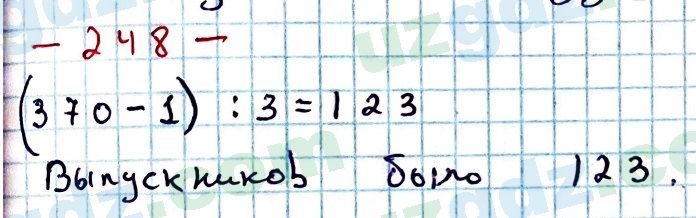 - 248 -
(370-1) : 3 = 123
Выпускников было 123.